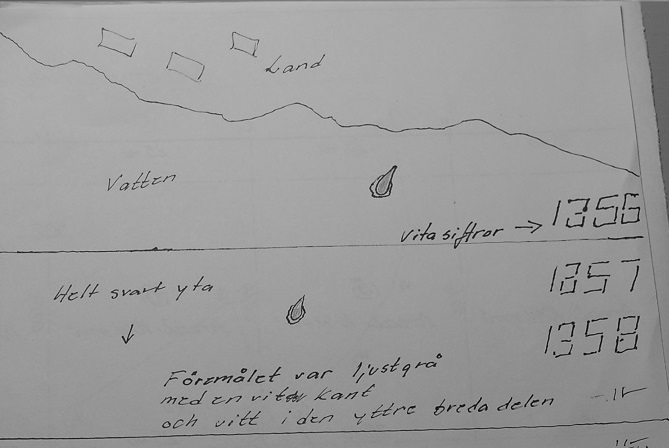 Land
Vatten
Vita siffror → 1356
1357
Helt svart yta
1358
Föremålet var ljustgrå
med en vit kant
och vitt i den yttre breda delen